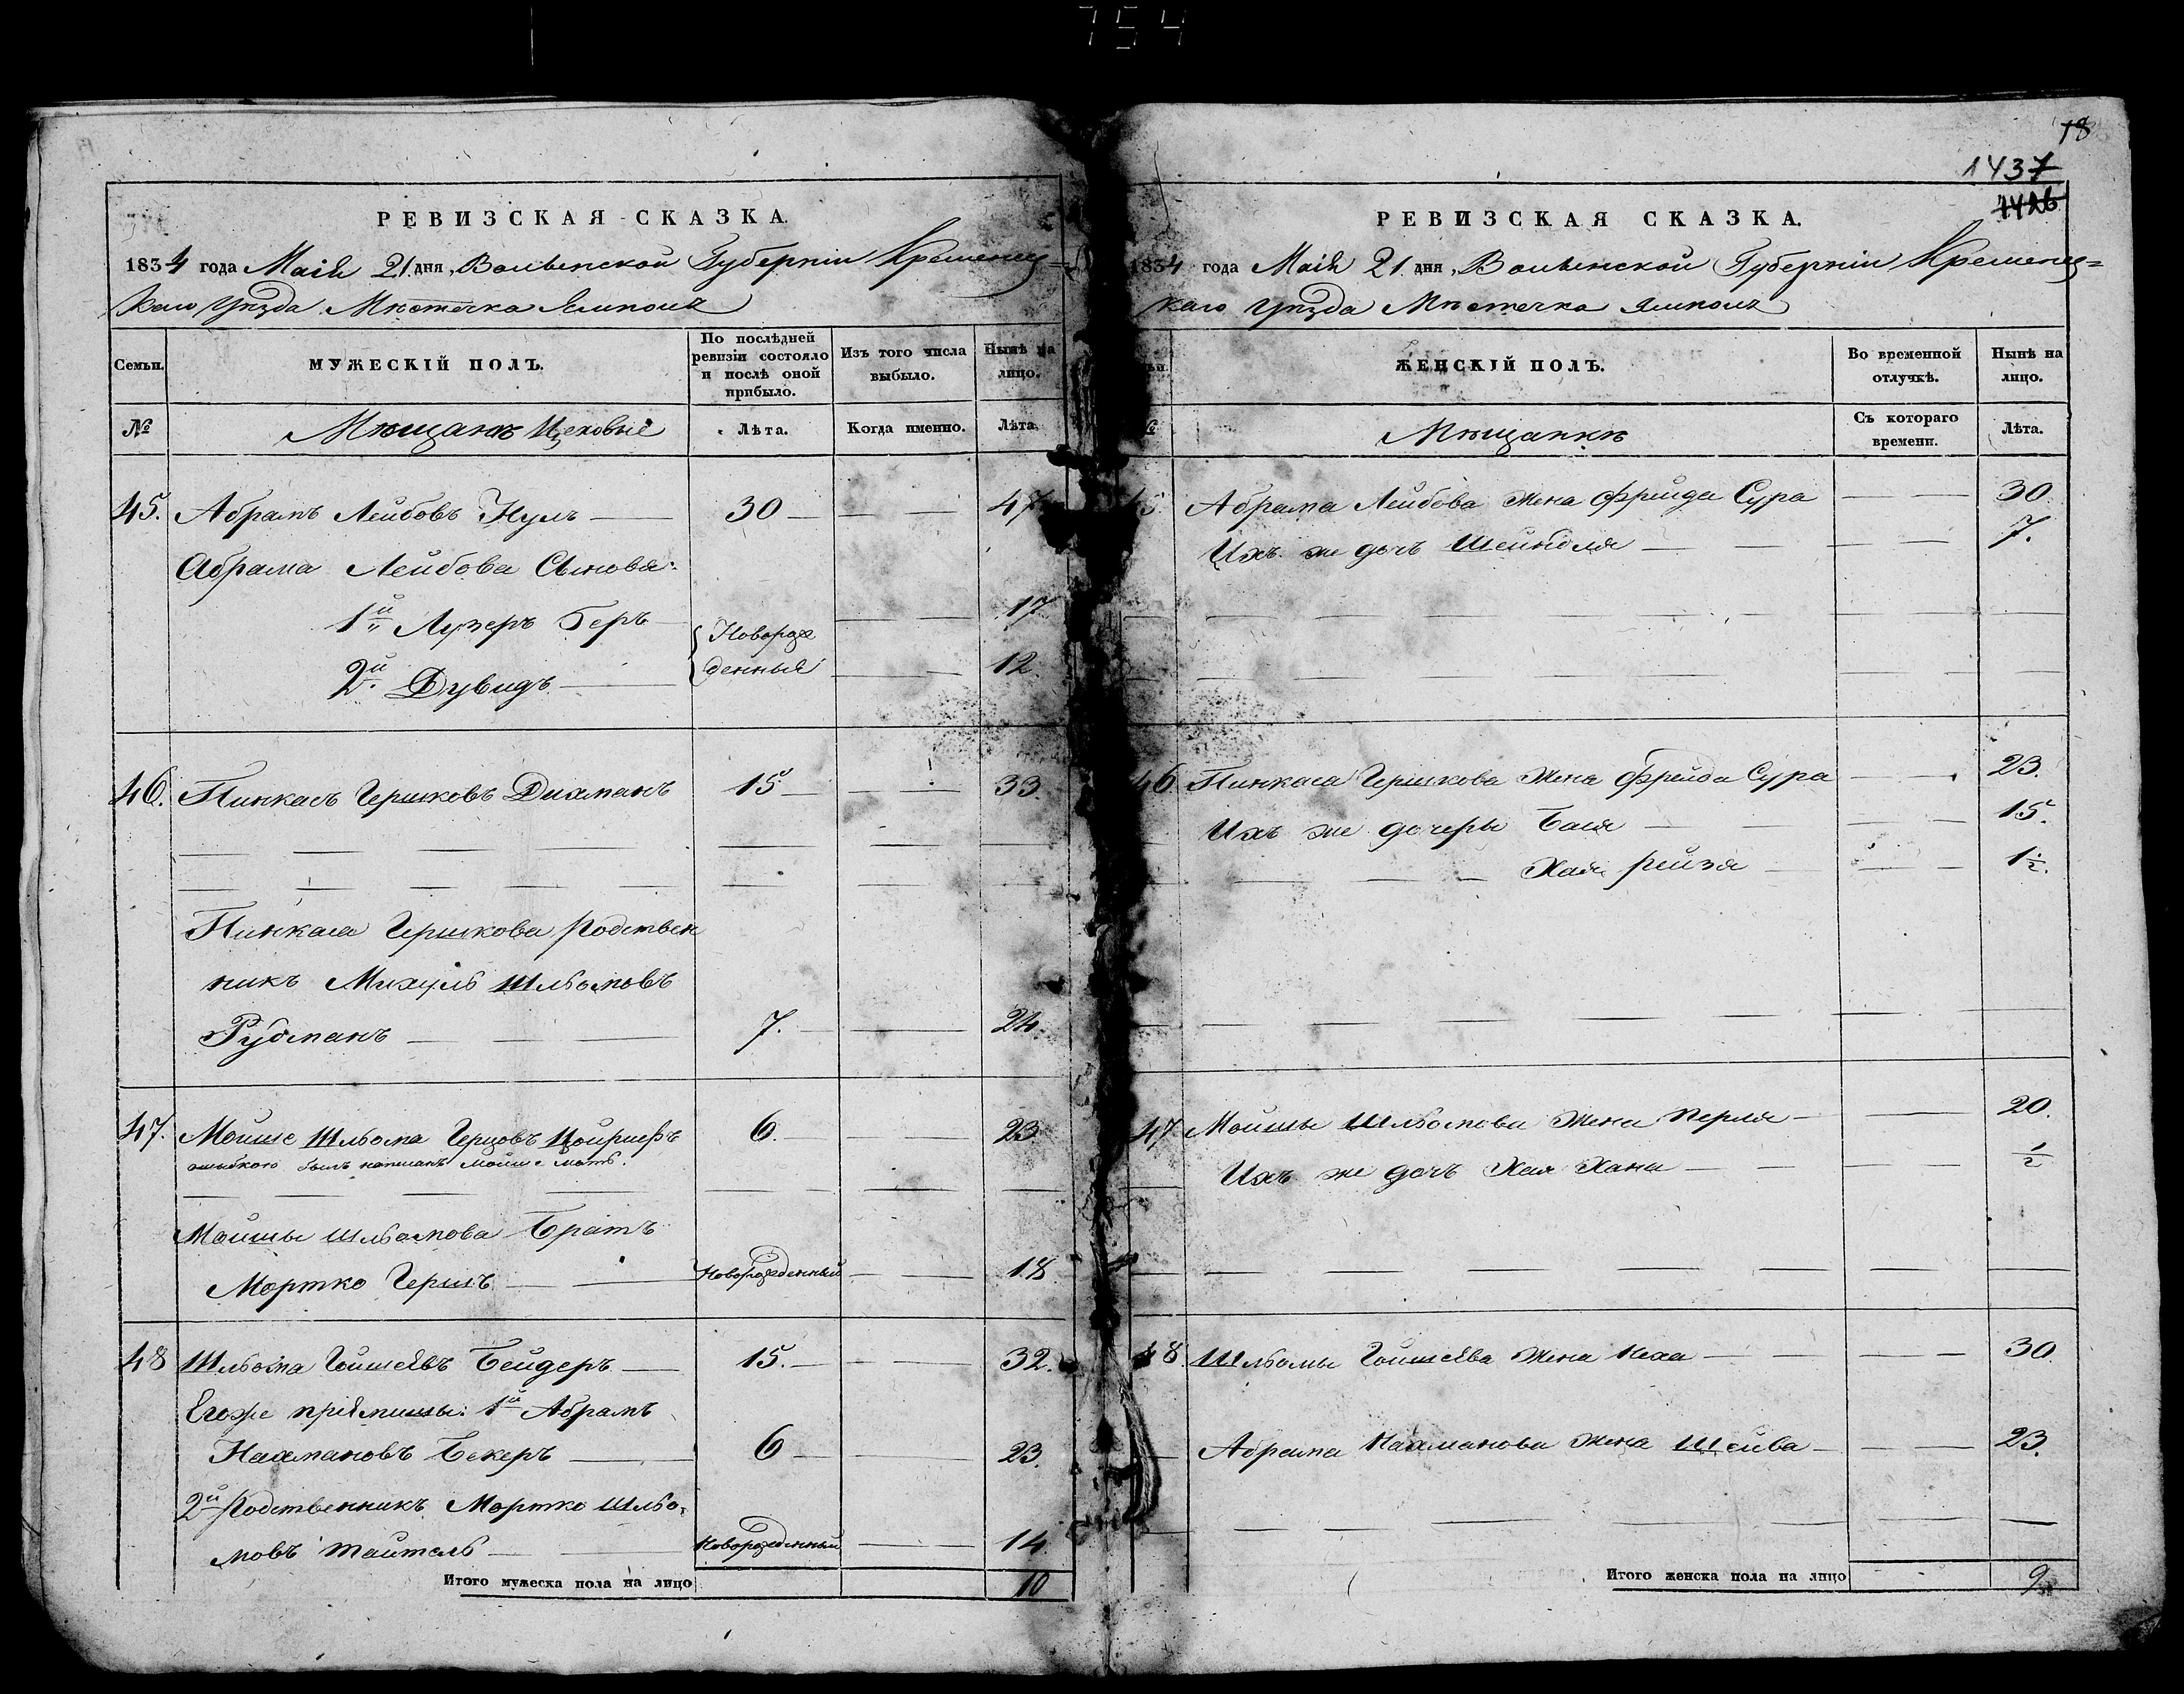 754
18
1437
1426
РЕВИЗСКАЯ СКАЗКА.
1834 года Маія 21 дня, Волынской Губерніи Кременец=
каго Уѣзда Мѣстечка Ямполя
Семьи.
МУЖЕСКІЙ ПОЛЪ.
По послѣдней ревизіи состояло и послѣ оной прибыло.
Изъ того числа выбыло.
Нынѣ на лицо.
№
Мѣщанъ Цеховые
Лѣта.
Когда именно.
Лѣта.
45. Абрамъ Лейбовъ Нулъ 30 47
Абрама Лейбова Сыновья:
1й Лузеръ Беръ Новорож 17
2й Дувидъ денные 12.
46. Пинкасъ Гершковъ Дихманъ 15 33.
Пинкаса Гершкова родствен
никъ Михуль Шльомовъ
Рубманъ 7. 24.
47. Мойше Шльома Герцовъ 6. 23
ошибкою былъ написанъ Мойше
Мойшы Шльомова Братъ
Мортко Гершъ Новорожденный 18
48 Шльома Гойшіевъ Бейдеръ 15. 32.
Егоже пріямышы: 1й Абрамъ
Нахмановъ Бекеръ 6 23.
2й Родственникъ Мортко Шльо-
мовъ Тайтель Новорожденный 14.
Итого мужеска пола на лицо 10
РЕВИЗСКАЯ СКАЗКА.
1834 года Маія 21 дня, Волынской Губерніи Кременец=
каго Уѣзда Мѣстечка Ямполя
ЖЕНСКІЙ ПОЛЪ.
Во временной отлучкѣ.
Нынѣ на лицо.
№
Мѣщанкѣ
Съ котораго времени.
Лѣта.
45. Абрама Лейбова жена Фрейда Сура 30
Ихъ же дочь Шейндля 7.
46 Пинкаса Гершкова жена Фрейда Сура 23.
Ихъ же дочеры Бася 15.
Хая Рейзя 1½.
47 Мойшы Шльомова жена Перля 20.
Ихъ же дочь Хая Хана ½
48 Шльомы Гойшіева жена Неха 30.
Абрама Нахманова жена Шейва 23.
Итого женска пола на лицо 9